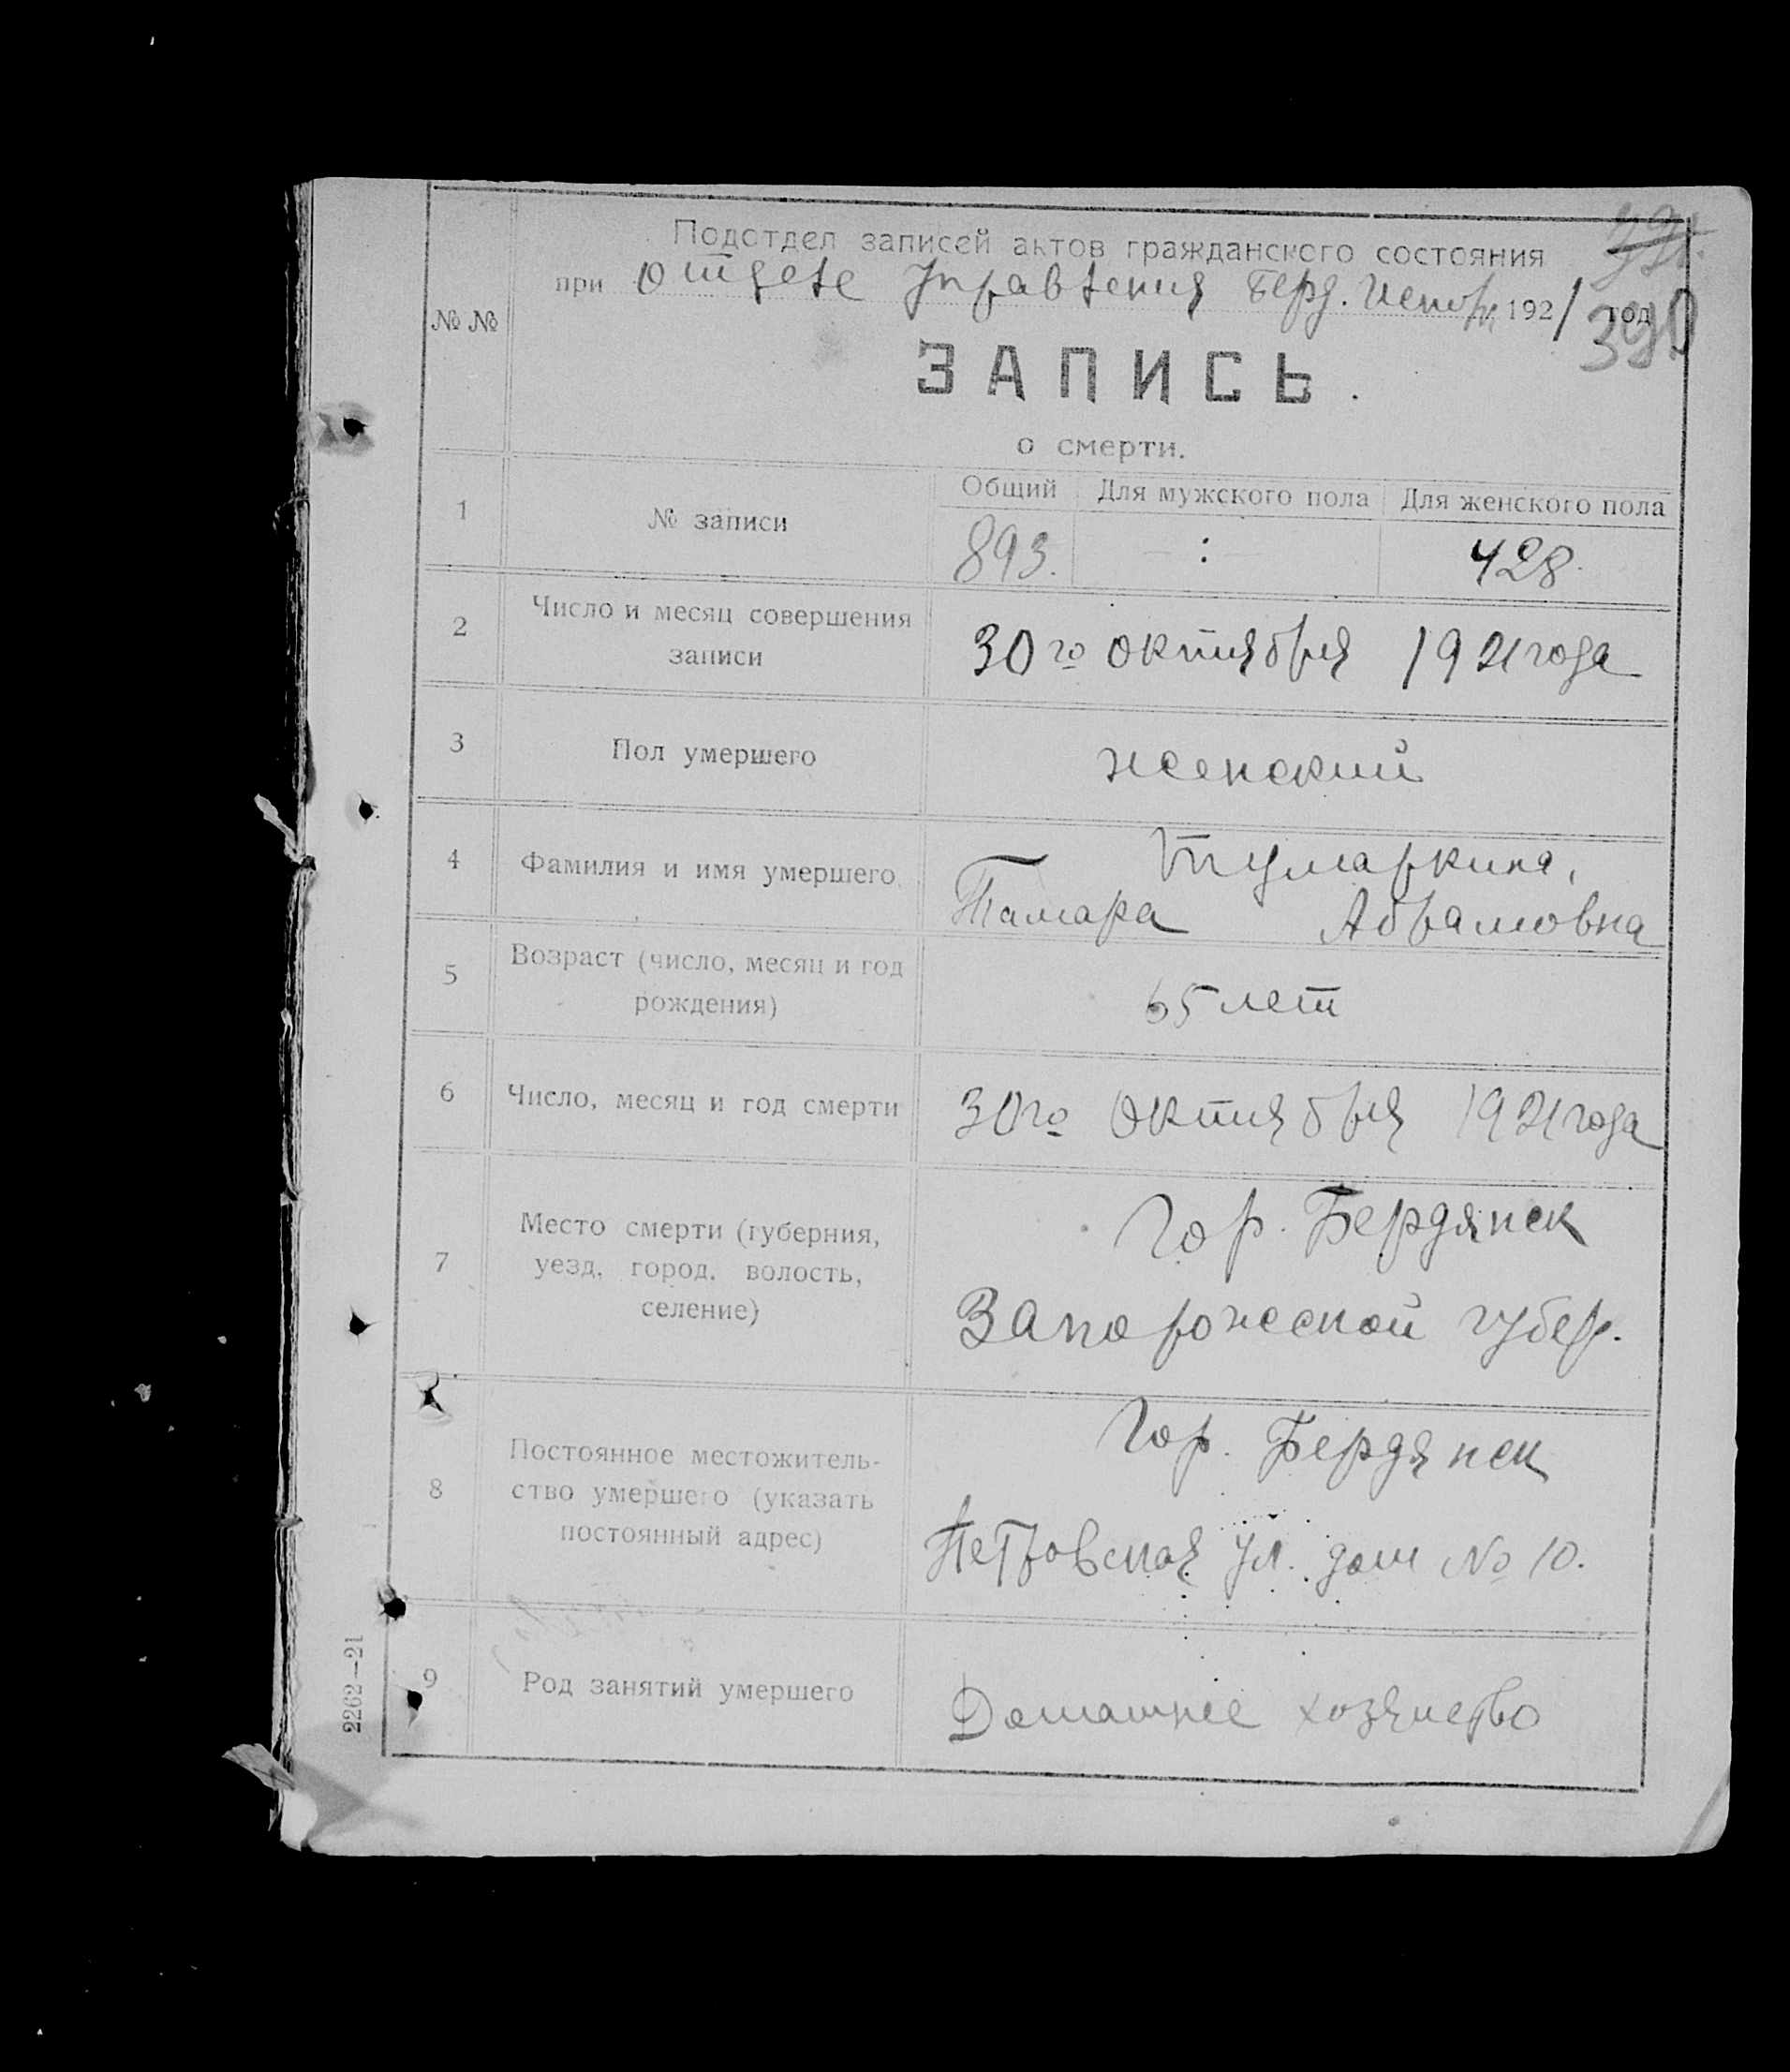 Подотдел записей актов гражданского состояния
при Отделе Управления Берд. 1921 год
390
№№
ЗАПИСЬ.
о смерти.
1 № записи Общий Для мужского пола Для женского пола
893. — : — 428.
2 Число и месяц совершения записи 30го октября 1921 года
3 Пол умершего женский
4 Фамилия и имя умершего Тумаркина,
Тамара Абрамовна
5 Возраст (число, месяц и год рождения) 65 лет
6 Число, месяц и год смерти 30го Октября 1921 года
7 Место смерти (губерния, уезд, город, волость, селение) Гор. Бердянск
Запорожской губер.
8 Постоянное местожитель-ство умершего (указать постоянный адрес) Гор. Бердянск
Петровская ул. дом № 10.
9 Род занятий умершего Домашнее хозяйство
2262—21